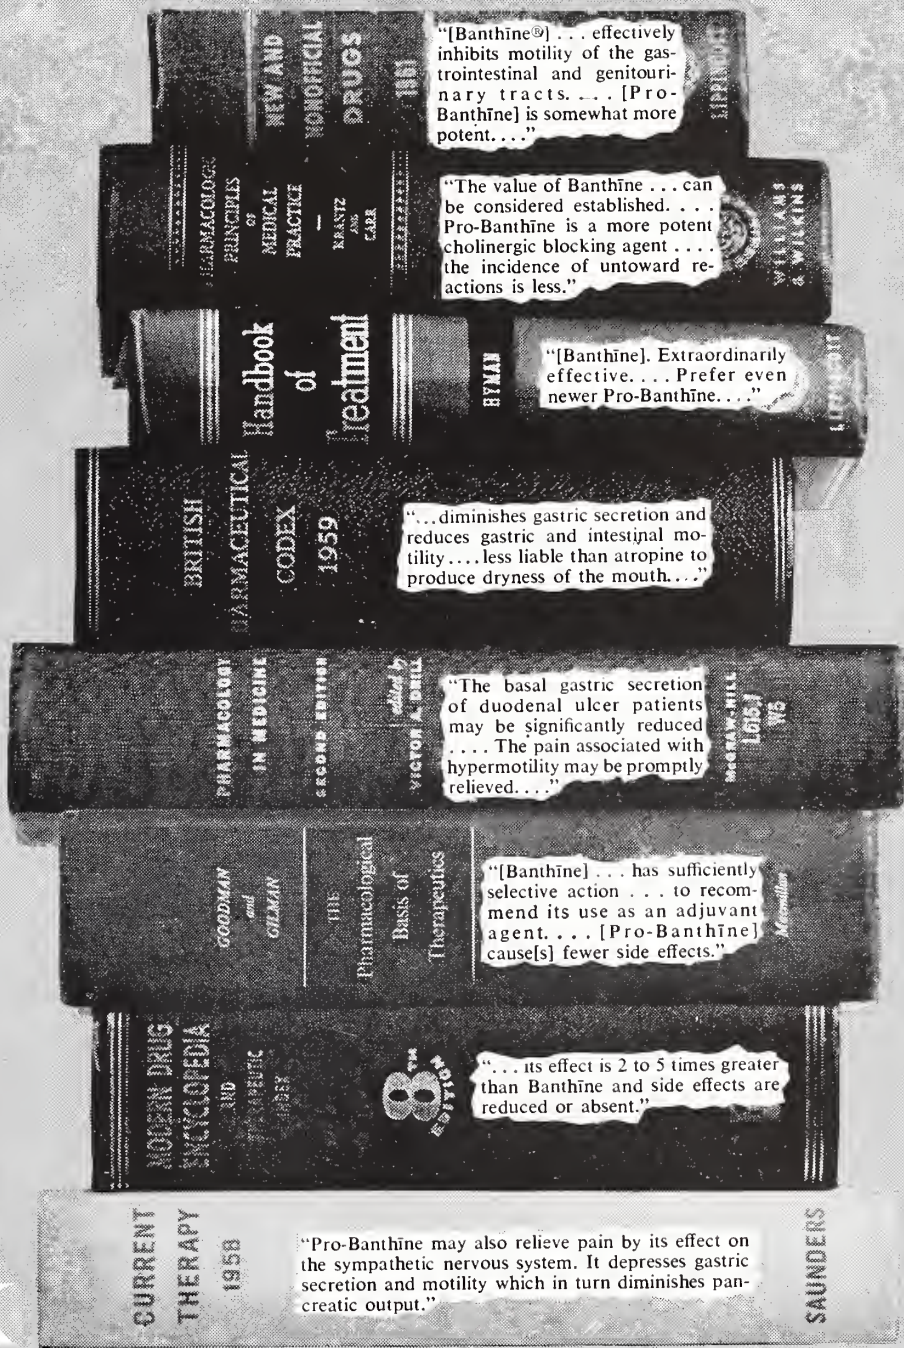 NEW AND
NONOFFICIAL
DRUGS
1961
"[Banthīne®] . . . effectively
inhibits motility of the gas-
trointestinal and genitouri-
nary tracts. . . . [Pro-
Banthīne] is somewhat more
potent. . . ."
LIPPINCOTT
PHARMACOLOGIC
PRINCIPLES
OF
MEDICAL
PRACTICE
KRANTZ
AND
CARR
"The value of Banthīne . . . can
be considered established. . . .
Pro-Banthīne is a more potent
cholinergic blocking agent . . . .
the incidence of untoward re-
actions is less."
WILLIAMS
& WILKINS
Handbook
of
Treatment
HYMAN
"[Banthīne]. Extraordinarily
effective. . . . Prefer even
newer Pro-Banthīne. . . ."
LIPPINCOTT
BRITISH
PHARMACEUTICAL
CODEX
1959
"...diminishes gastric secretion and
reduces gastric and intestinal mo-
tility . . . . less liable than atropine to
produce dryness of the mouth. . . ."
PHARMACOLOGY
IN MEDICINE
SECOND EDITION
edited by
VICTOR A. DRILL
"The basal gastric secretion
of duodenal ulcer patients
may be significantly reduced
. . . . The pain associated with
hypermotility may be promptly
relieved. . . ."
McGRAW-HILL
GOODMAN
and
GILMAN
THE
Pharmacological
Basis of
Therapeutics
"[Banthīne] . . . has sufficiently
selective action . . . to recom-
mend its use as an adjuvant
agent. . . . [Pro-Banthīne]
cause[s] fewer side effects."
Macmillan
MODERN DRUG
ENCYCLOPEDIA
AND
THERAPEUTIC
INDEX
8TH
EDITION
". . . its effect is 2 to 5 times greater
than Banthīne and side effects are
reduced or absent."
CURRENT
THERAPY
1958
"Pro-Banthīne may also relieve pain by its effect on
the sympathetic nervous system. It depresses gastric
secretion and motility which in turn diminishes pan-
creatic output."
SAUNDERS